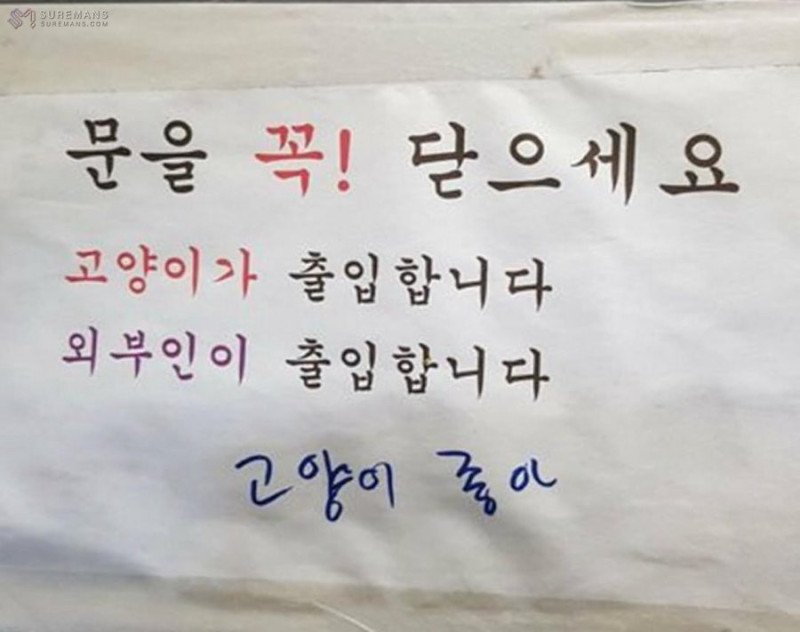 SUREMANS
SUREMANS.COM
문을 꼭! 닫으세요
고양이가 출입합니다
외부인이 출입합니다
고양이 좋아